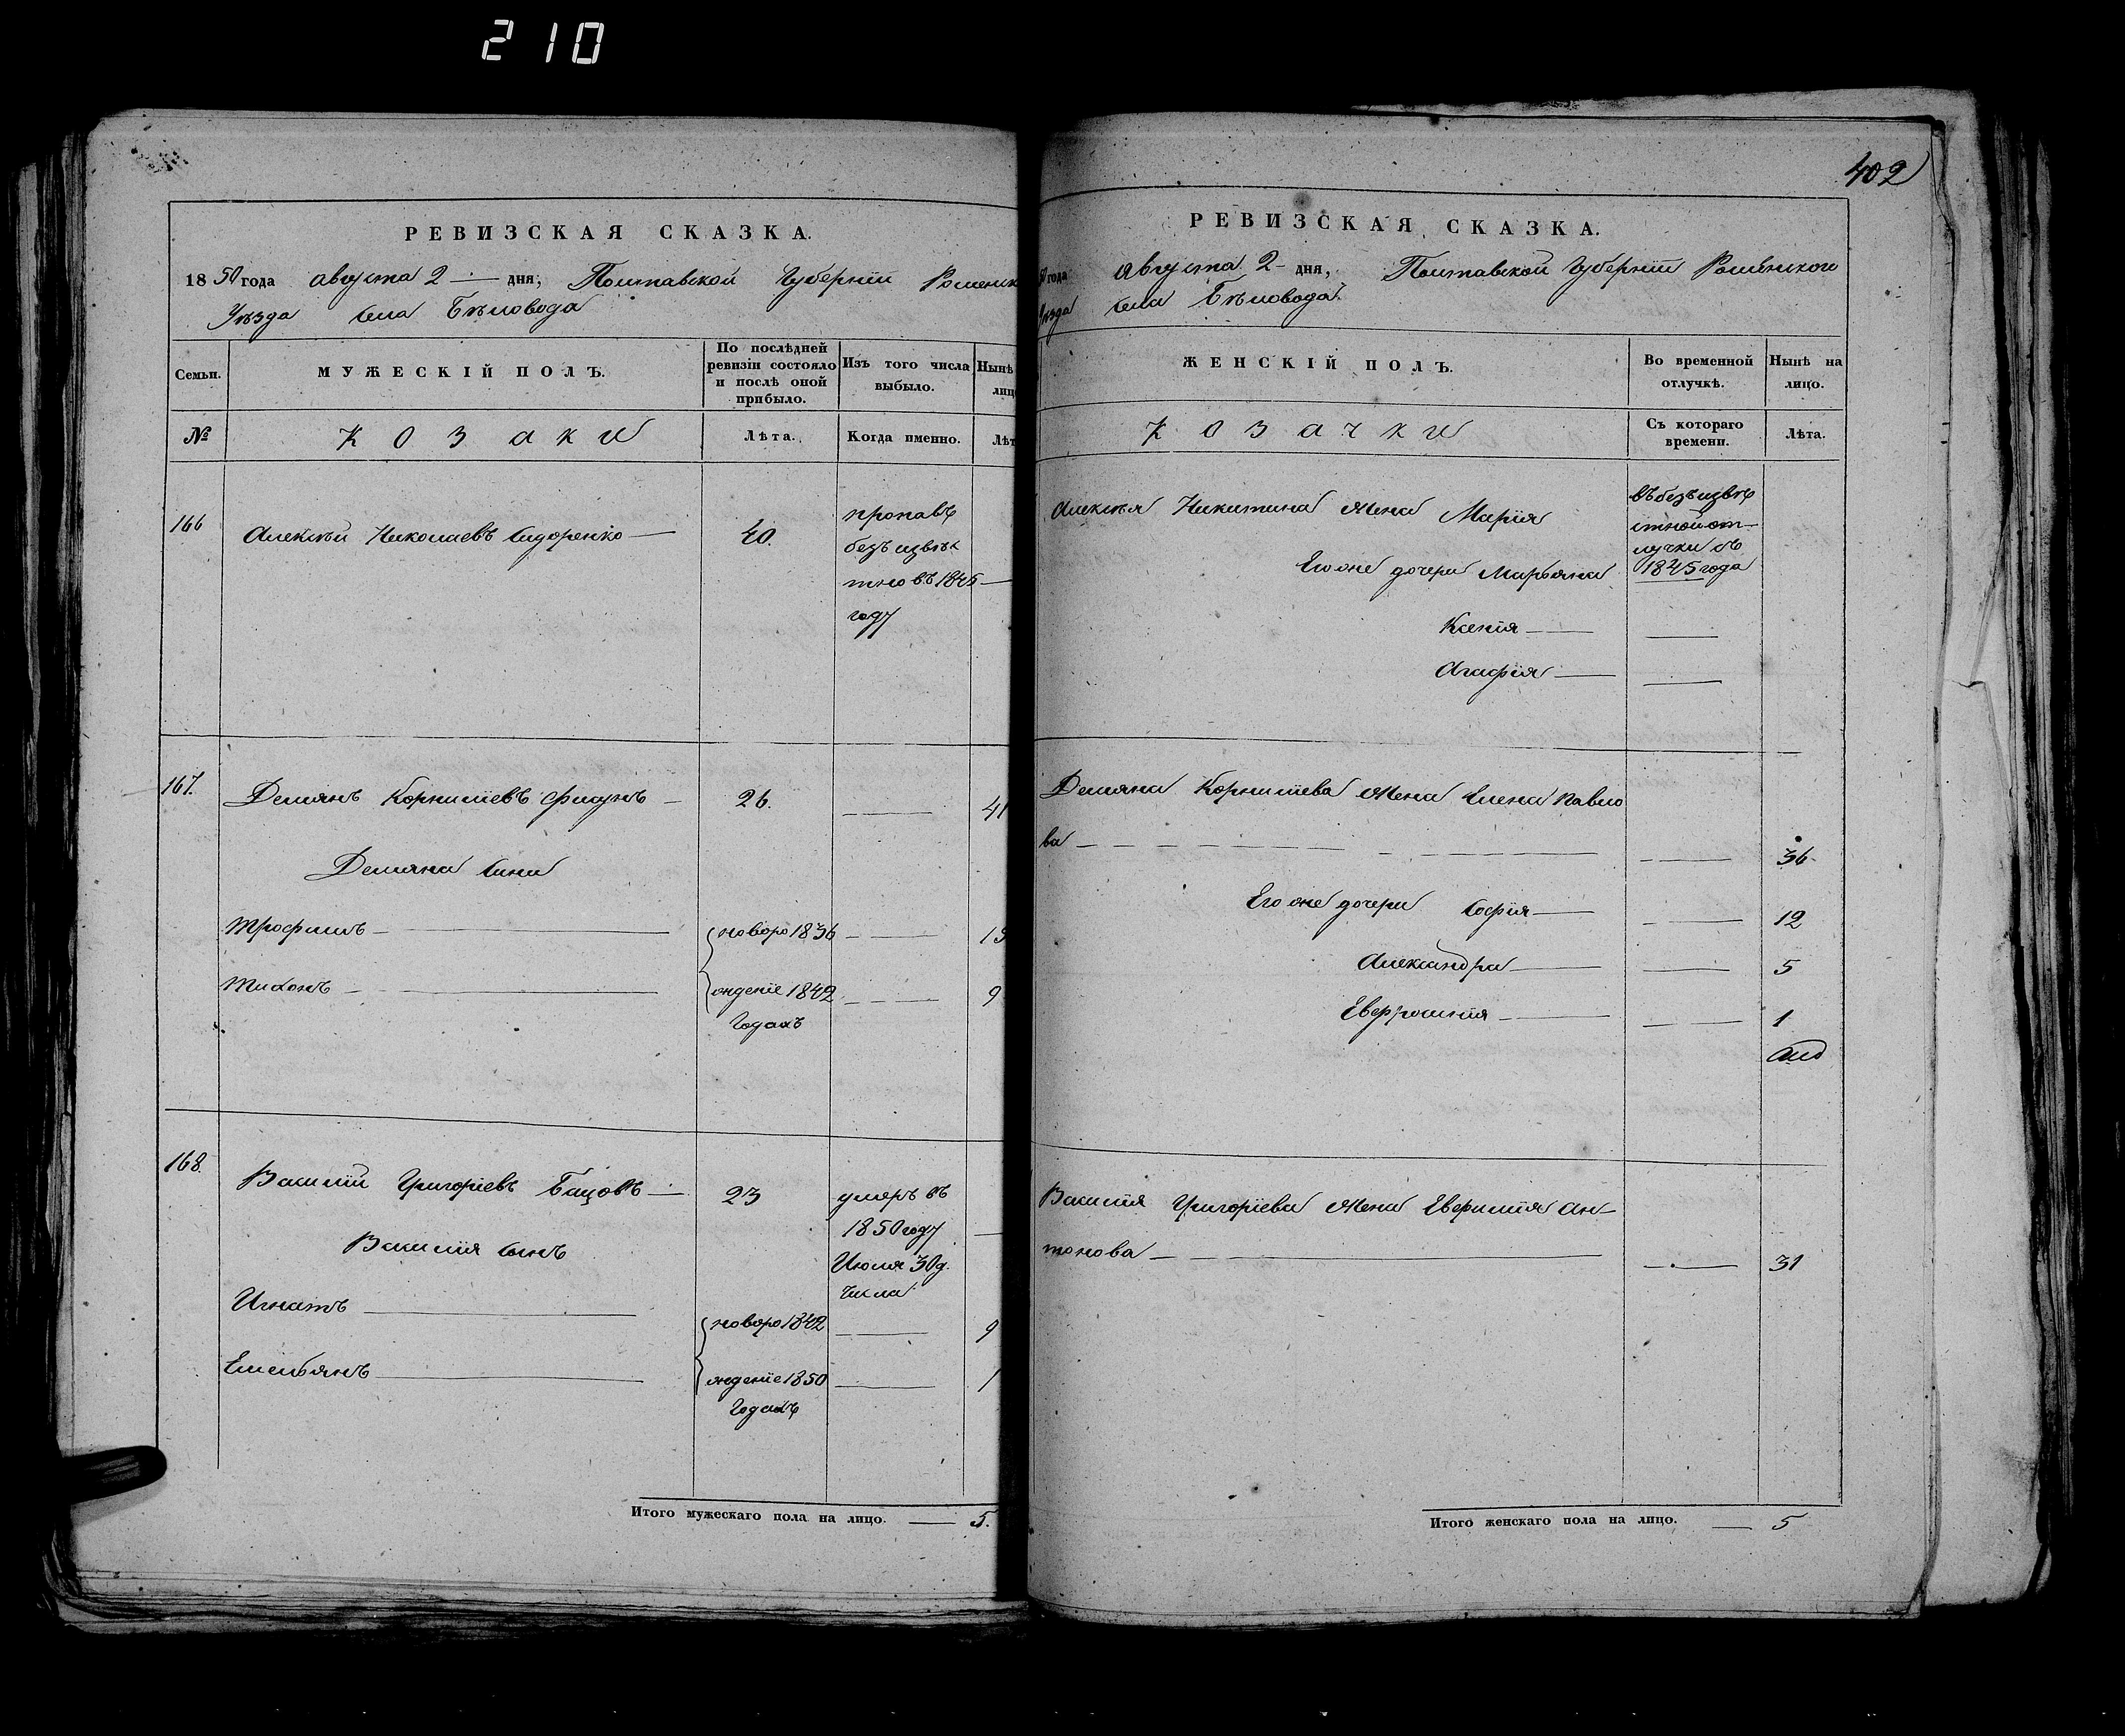 210
РЕВИЗСКАЯ СКАЗКА.
1850 года августа 2 дня, Полтавской Губерніи Роменск
Уѣзда села Бѣловода
Семьи.
МУЖЕСКІЙ ПОЛЪ.
По послѣдней ревизіи состояло и послѣ оной прибыло.
Изъ того числа выбыло.
Нынѣ
лиц
№
Козаки
Лѣта.
Когда именно.
Лѣт
166
Алексѣй Николаевъ Сидоренко — 40.
пропавъ
безъизвѣс
тно въ 1845 —
году
167. Демянъ Корнилїевъ Фисунъ — 26. — 41
Демяна сини
Трофимъ — новоро 1836 — 15
Тихонъ — ждение 1842 — 9
Годахъ
168. Василій Григоріевъ Бацовъ — 23
умеръ въ
1850 году —
Июля 30 д.
числа
Василія сынъ
Игнатъ — новоро 1842 — 9
Емельянъ — ждение 1850 — 1
Годахъ
Итого мужескаго пола на лицо. — 5.
402
РЕВИЗСКАЯ СКАЗКА.
50 года августа 2 дня, Полтавской Губерніи Роменского
Уѣзда села Бѣловода.
ЖЕНСКІЙ ПОЛЪ.
Во временной отлучкѣ.
Нынѣ на лицо.
Козачки
Съ котораго времени.
Лѣта.
Алексѣя Никитина жена Марія
въ безъизвѣ
стной от-
лучки съ
1845 года
Его же дочери Марьяна
Ксенія —
Агафія —
Демяна Корнилїева жена Елена Павло
ва — 36
Его же дочери Софія — 12
Александра — 5
Евфросинія — 1
Василія Григоріева жена Ан-
тонова — 31
Итого женскаго пола на лицо. — 5